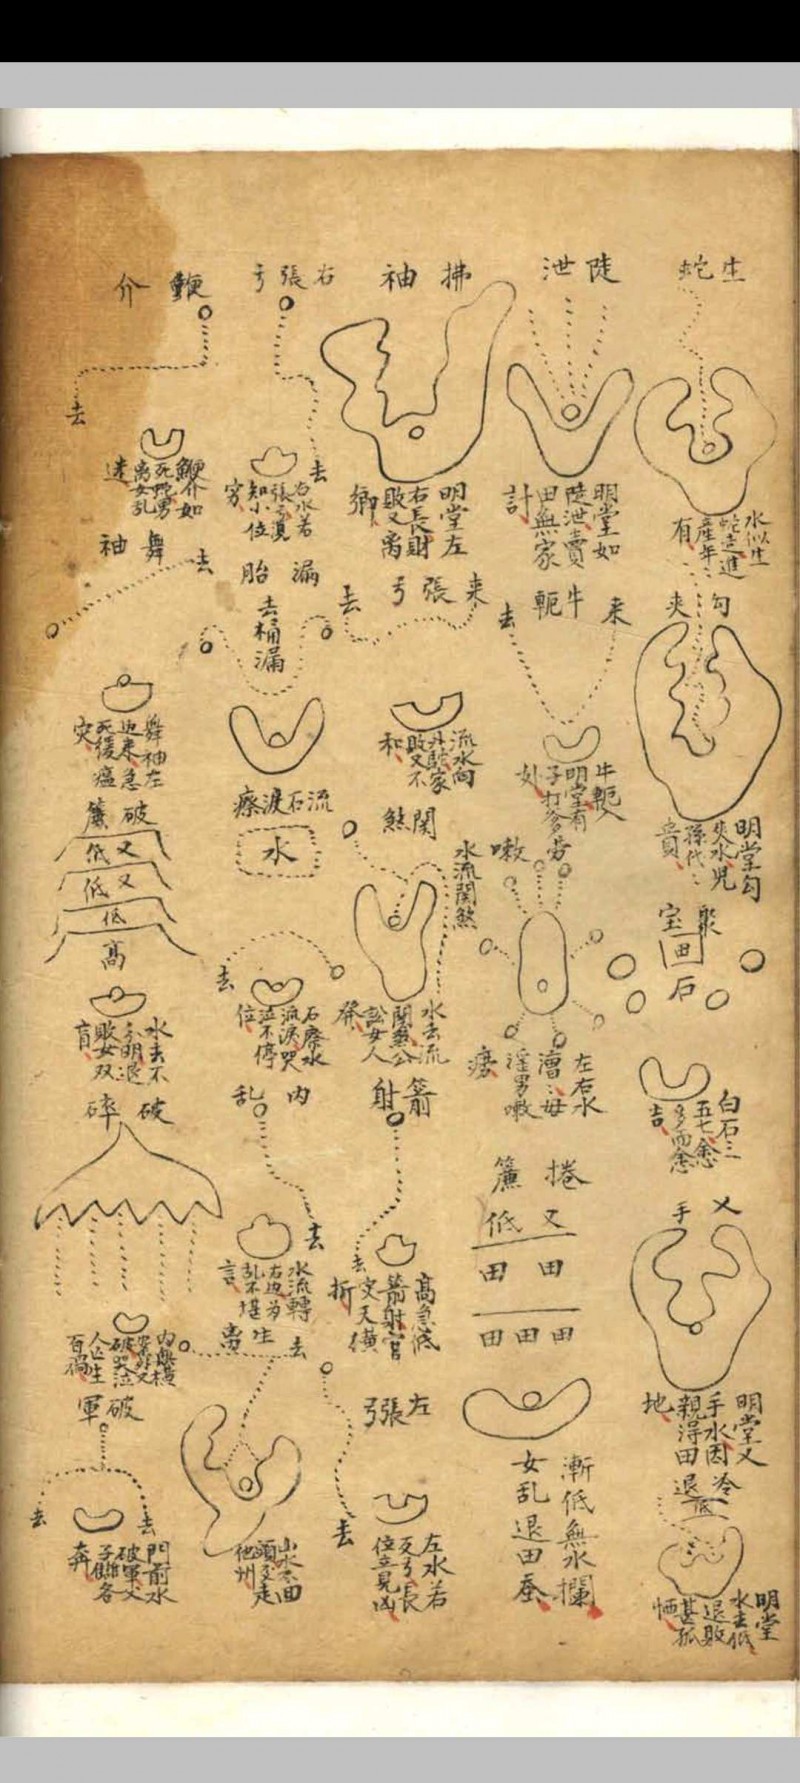 生蛇
水似生
蛇走進
產年
有
勾夾
明堂勾
夾水兒
孫代〻
貴
聚宝
田
石
白石三
五七愈
多而愈
吉
叉手
明堂叉
手水因
親得田
地
冷退
低
明堂
水去低
退敗
甚孤
恓
陡泄
明堂如
陡泄賣
田無家
計
来
牛軛
去
牛軛
明堂有
子打爹
嗽
左右水
淫男嗽
捲簾
又低
田田
田田田
漸低無水攔
女乱退田蚕
拂袖
明堂左
右長財
敗又离
鄉
来
張弓
去
流水向
敗又不
和
関煞
水流関煞
水去流
関煞公
訟女人
箭射
去
高急低
箭射官
灾天橫
折
左張弓
去
左水若
反弓長
位立見
凶
右張弓
去
右水若
張弓滇
知小位
穷
漏胎
去
桶漏
流石淚瘵
水
去
石瘵水
流淚哭
泣不停
位
内乱
去
水流轉
右边为
乱不堪
言
生离
去
山水不回
頭又走
他州
鞭介
去
如
死
离女乱
迷
舞袖
去
舞袖左
边来急
死緩瘟
灾
破簾
又低
又低
低
高
水去不
明退
敗女双
盲
破碎
破哭泣
人亡生
百禍
破軍
去
去
門前水
破軍父
子各
奔